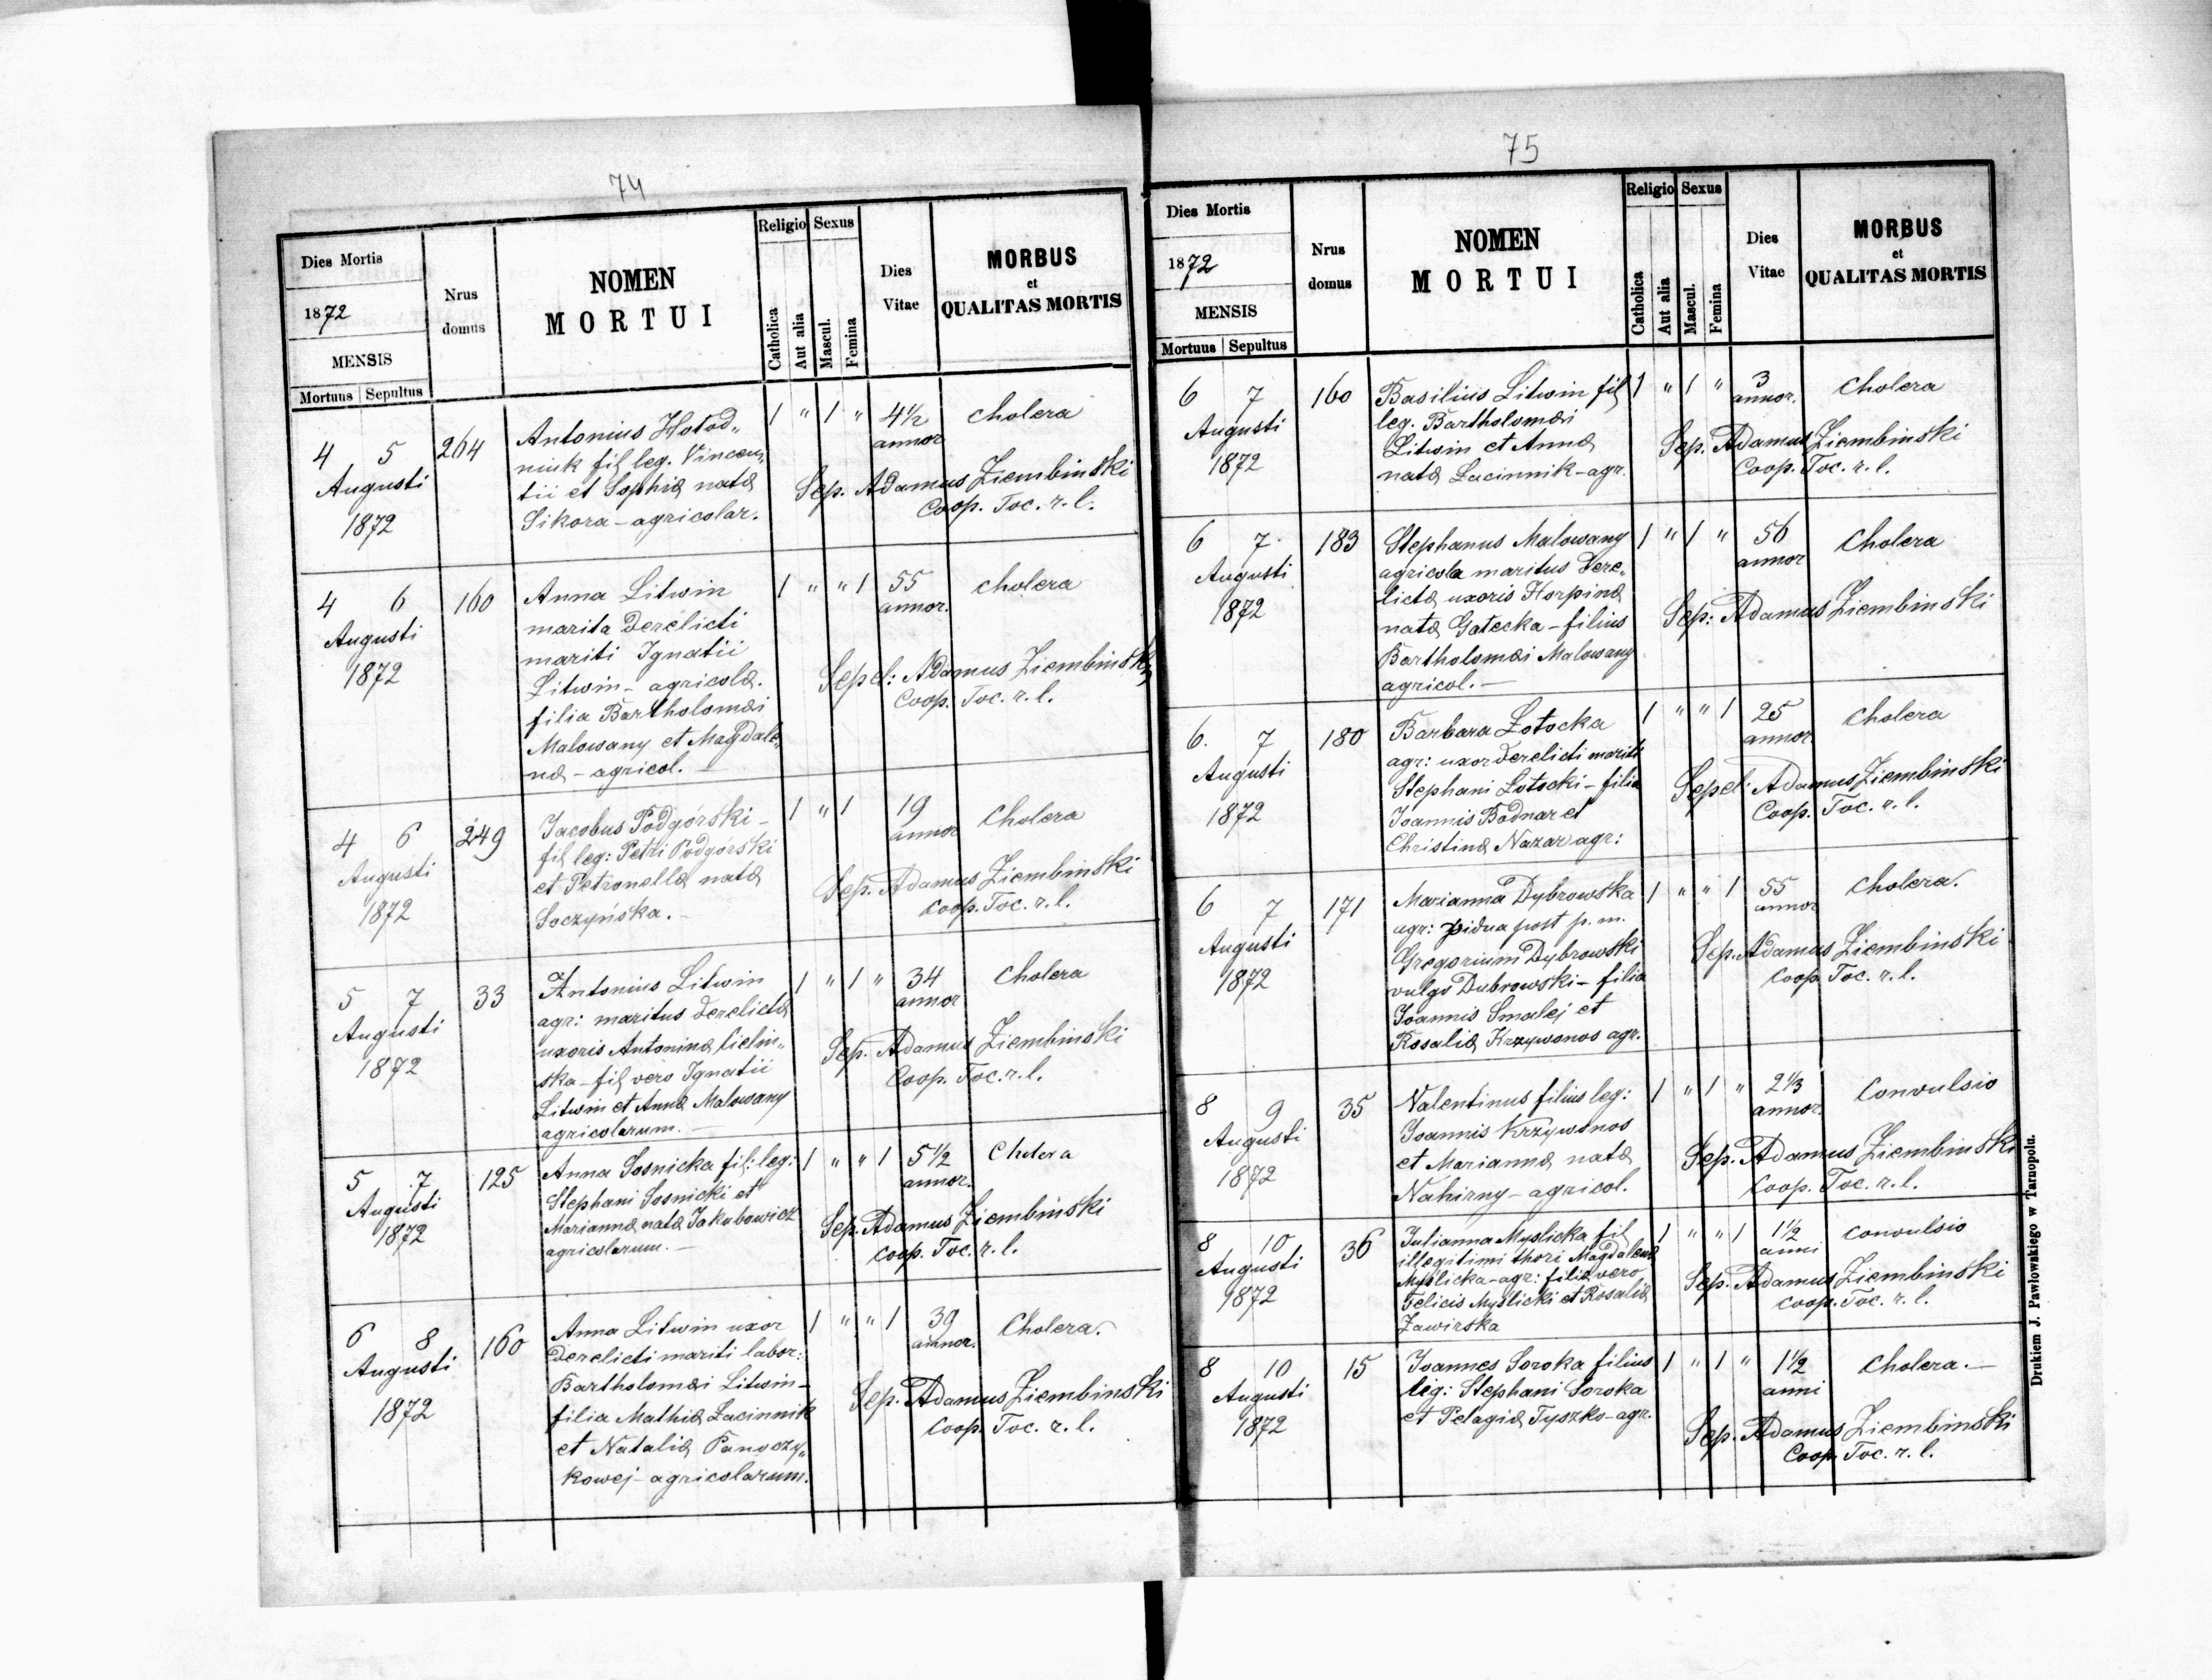 74
Dies Mortis
1872
MENSIS
Mortuus Sepultus
Nrus
domus
NOMEN
MORTUI
Religio Sexus
Catholica
Aut alia
Mascul.
Femina
Dies
Vitae
MORBUS
et
QUALITAS MORTIS
4 5 264 Antonius Hołod„ 1 " 1 " 4½ cholera
Augusti niuk fil leg. Vincen„ annor
1872 tii et Sophiæ natæ Sep. Adamus Ziembinski
Sikora - agricolar. Coop. Toc. r. l.
4 6 160 Anna Litwin 1 " " 1 55 cholera
Augusti marita derelicti annor.
1872 mariti Ignatii
Litwin - agricolæ. Sepel: Adamus Ziembinski
filia Bartholomæi Coop. Toc. r. l.
Malowany et Magdale„
næ - agricol. -
4 6 249 Jacobus Podgórski - 1 " 1 19 Cholera
Augusti fil leg: Petri Podgórski annor
1872 et Petronellæ natæ Sep. Adamus Ziembinski
Soczyńska. - Coop. Toc. r. l.
5 7 33 Antonius Litwin 1 " 1 " 34 Cholera
Augusti agr: maritus derelictæ annor
1872 uxoris Antoninæ Cielin„ Sep. Adamus Ziembinski
ska - fil vero Ignatii Coop. Toc. r. l.
Litwin et Annæ Malowany
agricolarum. -
5 7 125 Anna Sosnicka fil: leg: 1 " " 1 5½ Cholera
Augusti Stephani Sosnicki et annor.
1872 Mariannæ natæ Jakubowicz Sep. Adamus Ziembinski
agricolarum. - Coop. Toc. r. l.
6 8 160 Anna Litwin uxor 1 " " 1 39 Cholera.
Augusti derelicti mariti labor: annor.
1872 Bartholomæi Litwin - Sep. Adamus Ziembinski
filia Mathiæ Łacinnik Coop. Toc. r. l.
et Nataliæ Panoczy„
kowej - agricolarum.
75
Dies Mortis
1872
MENSIS
Mortuus Sepultus
Nrus
domus
NOMEN
MORTUI
Religio Sexus
Catholica
Aut alia
Mascul.
Femina
Dies
Vitae
MORBUS
et
QUALITAS MORTIS
6 7 160 Basilius Litwin fil 1 " 1 " 3 Cholera
Augusti leg. Bartholomæi annor.
1872 Litwin et Annæ Sep. Adamus Ziembinski
natæ Łacinnik - agr. Coop. Toc. r. l.
6 7 183 Stephanus Malowany 1 " 1 " 56 Cholera
Augusti agricola maritus dere„ annor
1872 lictæ uxoris Horpinæ Sep: Adamus Ziembinski
natæ Gałecka - filius
Bartholomæi Malowany
agricol. -
6. 7 180 Barbara Łotocka 1 " " 1 25 Cholera
Augusti agr: uxor derelicti mariti annor.
1872 Stephani Łotocki - filia Sepel: Adamus Ziembinski
Joannis Bodnar et Coop. Toc. r. l.
Christinæ Nazar agr:
6 7 171 Marianna Dybrowska 1 " " 1 55 Cholera.
Augusti agr: vidua post p. m. annor
1872 Gregorium Dybrowski Sep. Adamus Ziembinski
vulgo Dubrowski - filia Coop. Toc. r. l.
Joannis Smalej et
Rosaliæ Krzywonos agr.
8 9 35 Valentinus filius leg: 1 " 1 " 2⅓ Convulsio
Augusti Joannis Krzywonos annor.
1872 et Mariannæ natæ Sep. Adamus Ziembinski
Nahirny - agricol. Coop. Toc. r. l.
8 10 36 Julianna Myslicka fil 1 " " 1 1½ convulsio
Augusti illegitimi thori Magdalenæ anni
1872 Myslicka - agr: filiæ vero Sep. Adamus Ziembinski
Felicis Myslicki et Rosaliæ Coop. Toc. r. l.
Zawirska
8 10 15 Joannes Soroka filius 1 " 1 " 1½ Cholera. -
Augusti leg: Stephani Soroka anni
1872 et Pelagiæ Tyszko - agr. Sep. Adamus Ziembinski
Coop. Toc. r. l.
Drukiem J. Pawlowskiego w Tarnopolu.